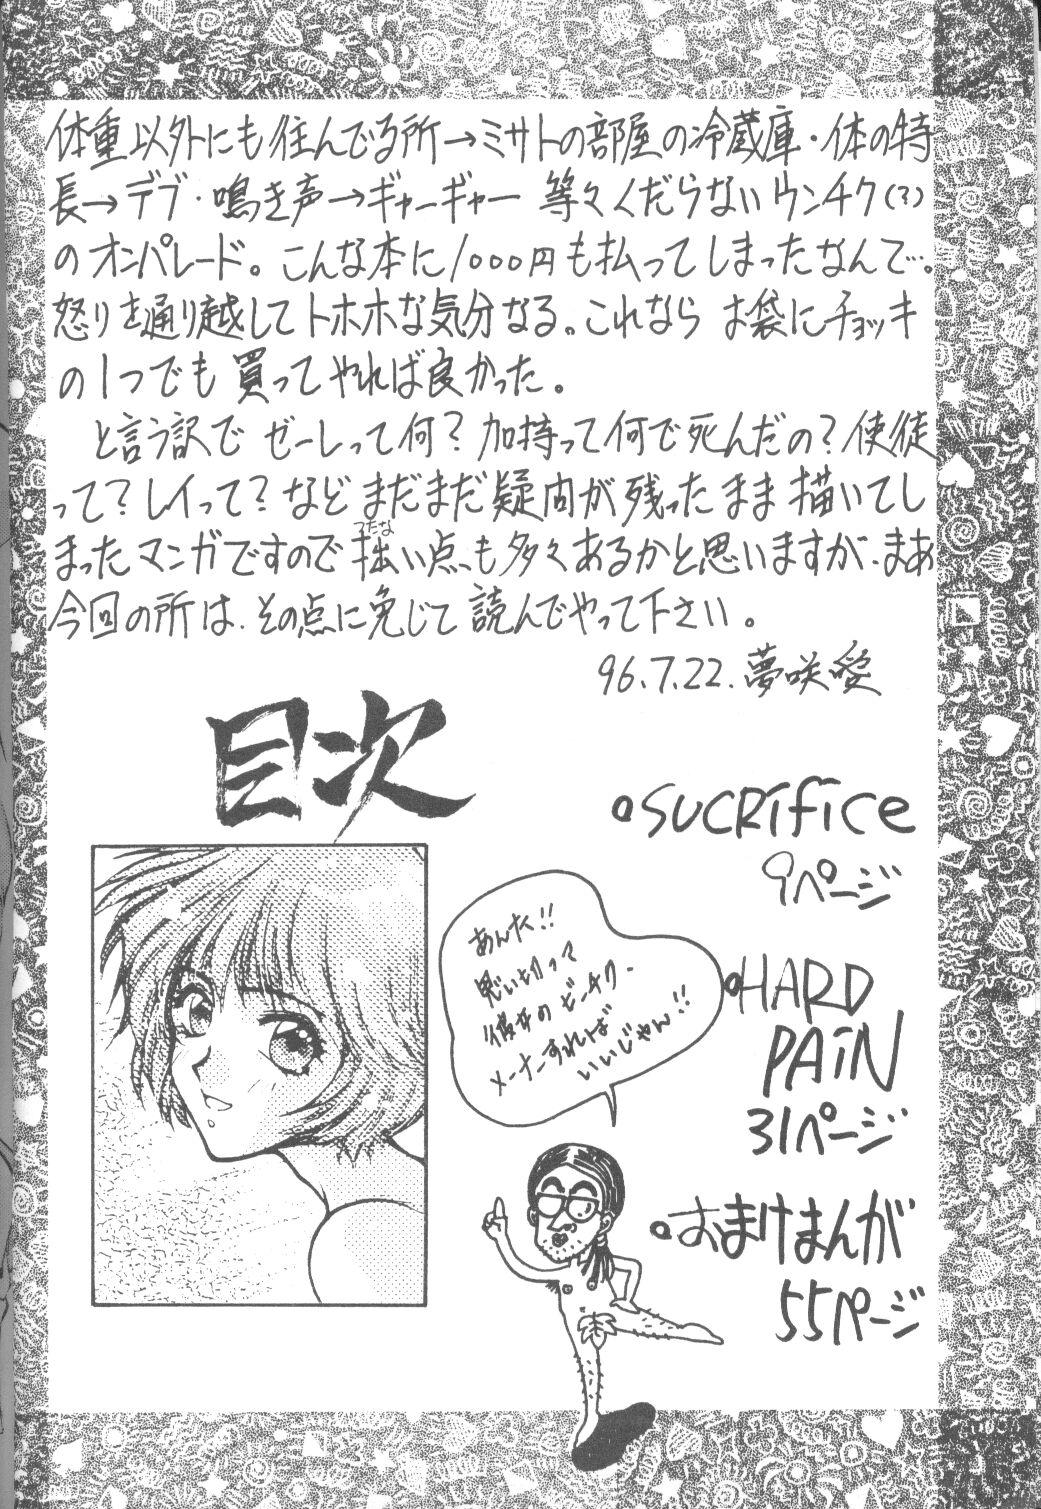 体重以外にも住んでる所→ミサトの部屋の冷蔵庫・体の特
長→デブ・鳴き声→ギャーギャー 等々くだらないウンチク(?)
のオンパレード。こんな本に1000円も払ってしまったなんて…。
怒りを通り越してトホホな気分なる。これなら お袋にチョッキ
の1つでも買ってやれば良かった。
と言う訳で ゼーレって何?加持って何で死んだの?使徒
って?レイって?などまだまだ疑問が残ったまま描いてし
まったマンガですので拙い点も多々あるかと思いますが、まあ
つたな
今回の所は、その点に免じて読んでやって下さい。
96.7.22.夢咲愛
目次
SUCRifice
9ページ
HARD
PAiN
31ページ
おまけまんが
55ページ
あんた!!
思い切って
彼女のピーチク-
メーナーすれば
いいじゃん!!